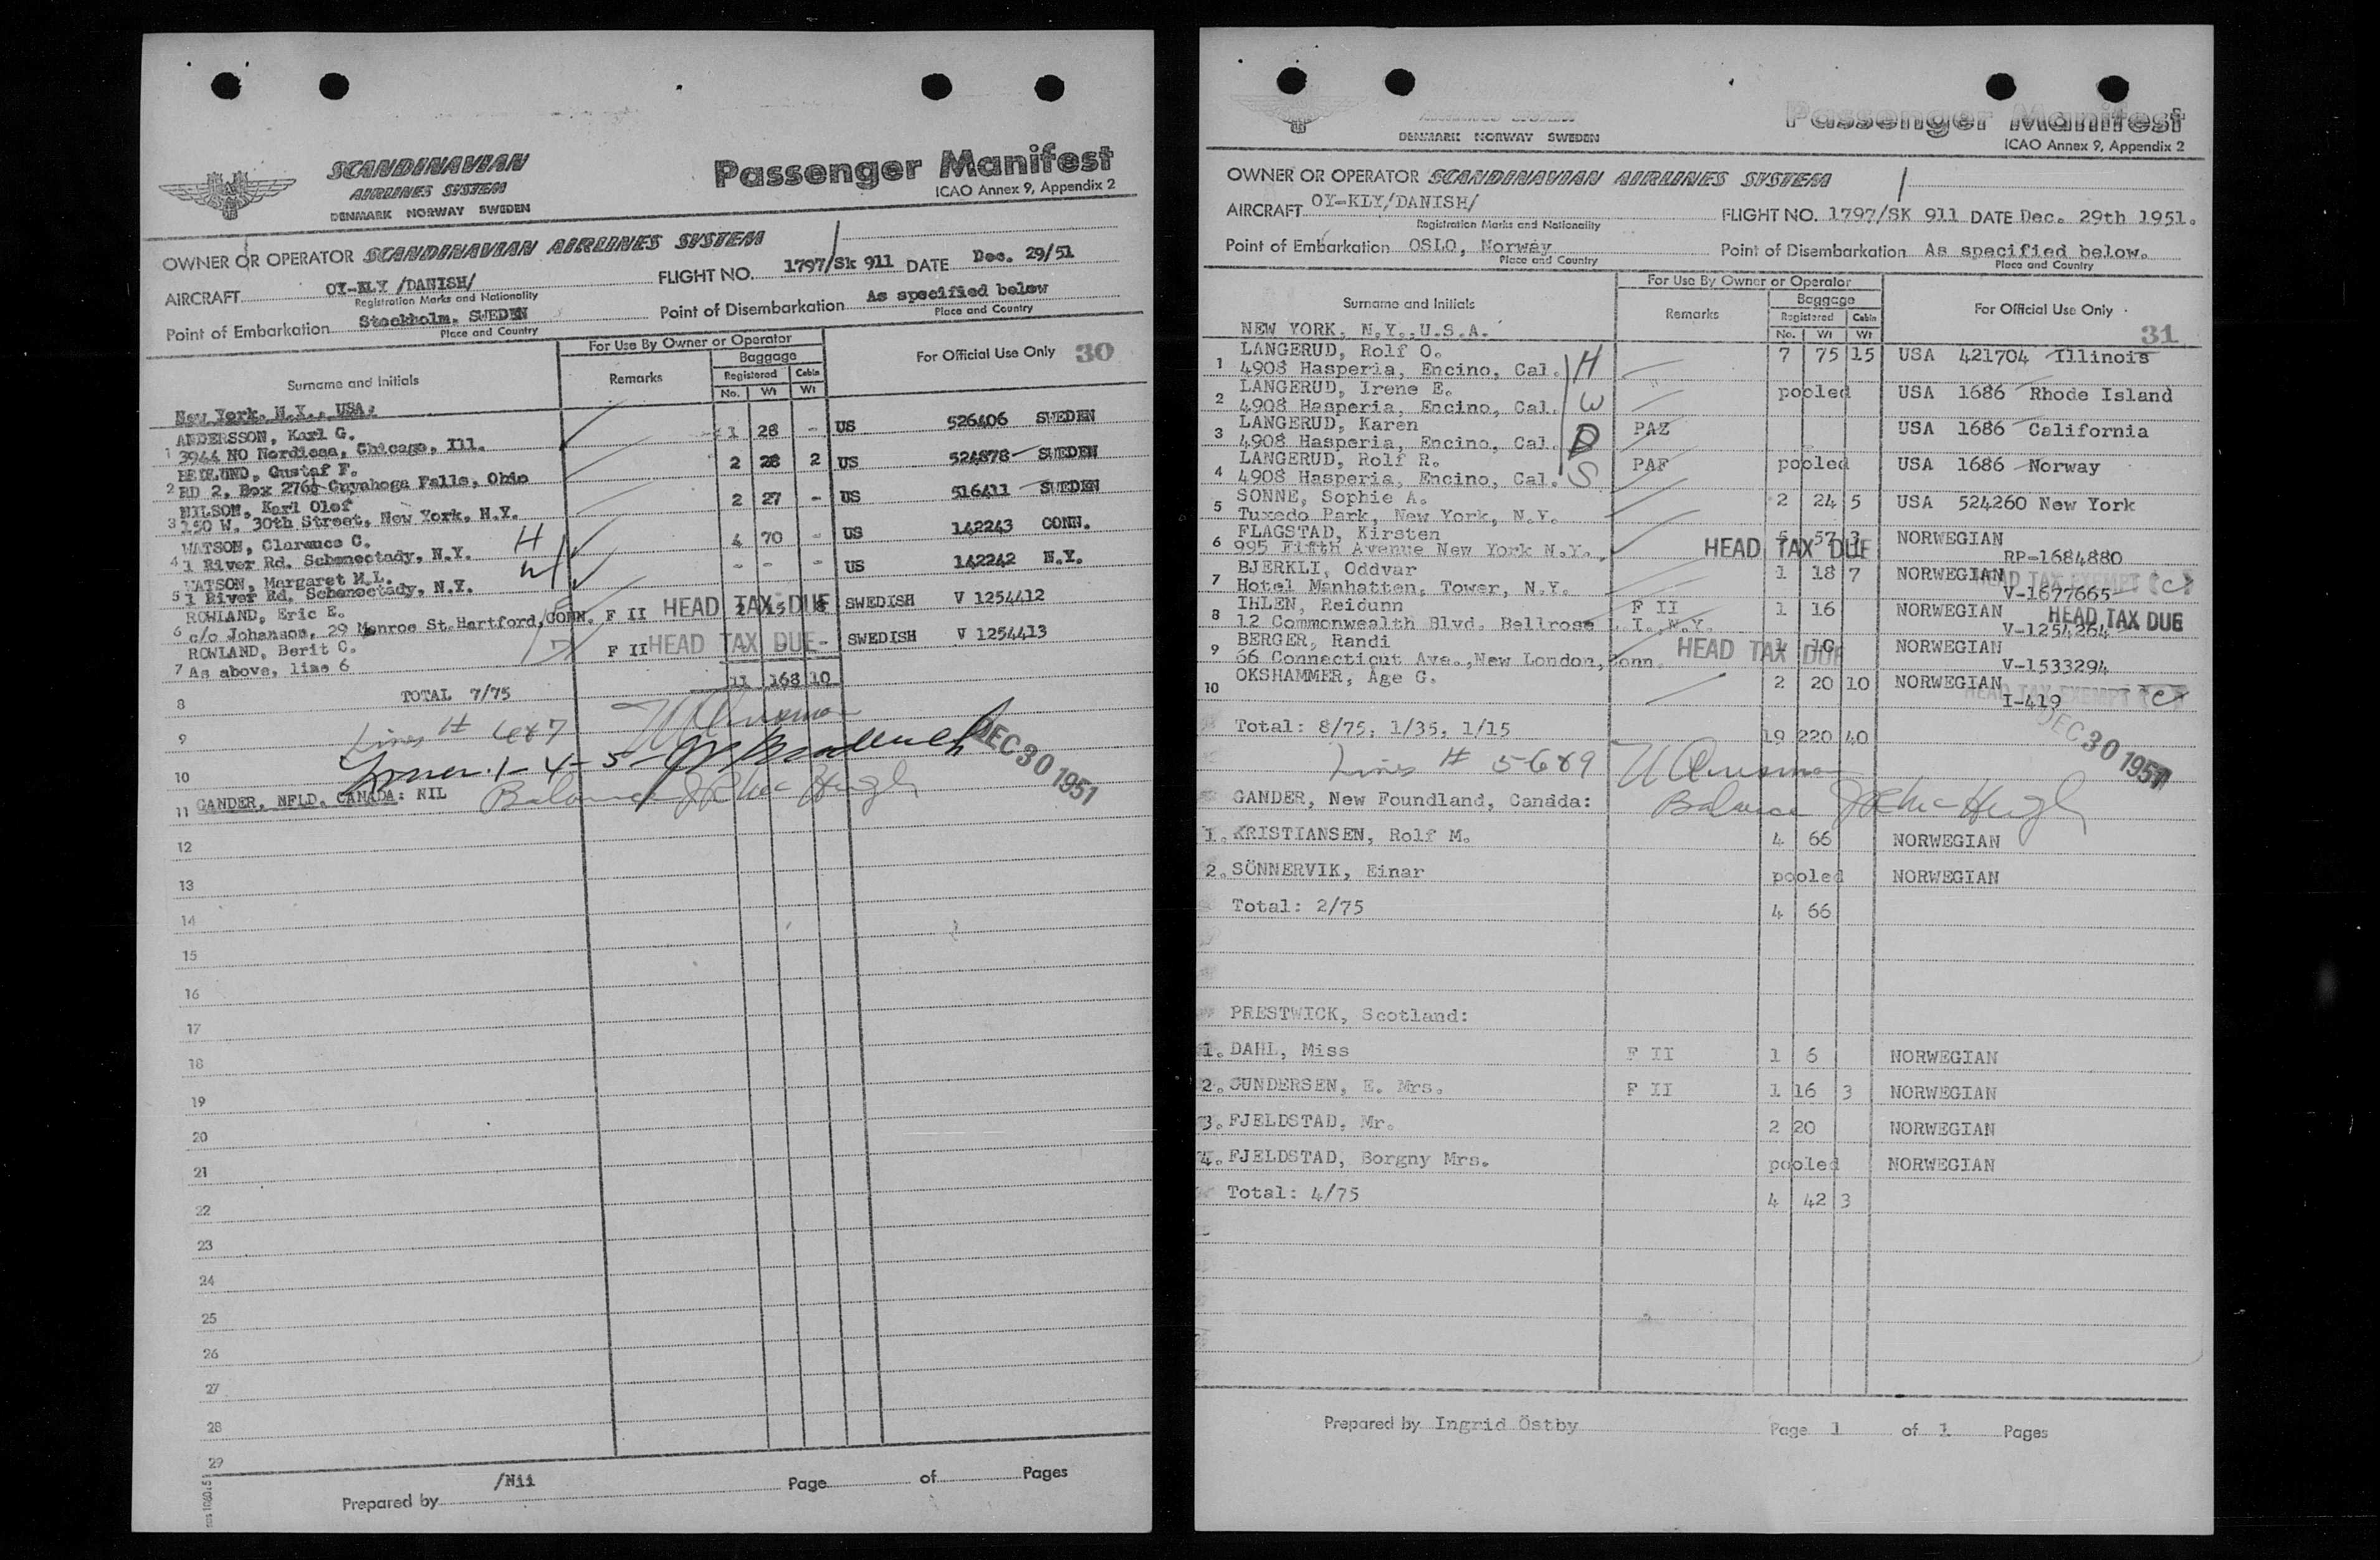 SCANDINAVIAN
AIRLINES SYSTEM
DENMARK NORWAY SWEDEN
Passenger Manifest
ICAO Annex 9, Appendix 2
OWNER OR OPERATOR SCANDINAVIAN AIRLINES SYSTEM
AIRCRAFT OY-KLY /DANISH/ FLIGHT NO. 1797/Sk 911 DATE Dec. 29/51
Registration Marks and Nationality
Point of Embarkation Stockholm. SWEDEN Point of Disembarkation As specified below
Place and Country Place and Country
For Use By Owner or Operator
Surname and Initials Remarks Baggage For Official Use Only 30
Registered Cabin
No. Wt Wt
New York, N.Y., USA:
ANDERSSON, Karl G. 1 28 - US 526406 SWEDEN
1 3944 NO Nordica, Chicago, Ill.
HEDLUND, Gustaf F. 2 28 2 US 524878 SWEDEN
2 RD 2, Box 276 Cuyahoga Falls, Ohio
NILSON, Karl Olof 2 27 - US 516411 SWEDEN
3 150 W. 30th Street, New York, N.Y.
WATSON, Clarence C. H 4 70 - US 142243 CONN.
4 1 River Rd. Schenectady, N.Y.
WATSON, Margaret M.L. W - - - US 142242 N.Y.
5 1 River Rd. Schenectady, N.Y.
ROWLAND, Eric E. F II HEAD TAX DUE 2 15 8 SWEDISH V 1254412
6 c/o Johanson, 29 Monroe St. Hartford, CONN.
ROWLAND, Berit C. F II HEAD TAX DUE - SWEDISH V 1254413
7 As above, line 6
11 168 10
8 TOTAL 7/75
9 Lines # 6&7
10 Lines 1-4-5-
DEC 30 1951
11 GANDER, NFLD. CANADA: NIL Balance
12
13
14
15
16
17
18
19
20
21
22
23
24
25
26
27
28
29
Prepared by /Nii Page of Pages
DENMARK NORWAY SWEDEN
Passenger Manifest
ICAO Annex 9, Appendix 2
OWNER OR OPERATOR SCANDINAVIAN AIRLINES SYSTEM
AIRCRAFT OY-KLY/DANISH/ FLIGHT NO. 1797/SK 911 DATE Dec. 29th 1951.
Registration Marks and Nationality
Point of Embarkation OSLO, Norway Point of Disembarkation As specified below.
Place and Country Place and Country
For Use By Owner or Operator
Surname and Initials Remarks Baggage For Official Use Only
Registered Cabin
No. Wt Wt
31
NEW YORK, N.Y.,U.S.A.
LANGERUD, Rolf O. H 7 75 15 USA 421704 Illinois
1 4908 Hasperia, Encino, Cal.
LANGERUD, Irene E. W pooled USA 1686 Rhode Island
2 4908 Hasperia, Encino, Cal.
LANGERUD, Karen D PAZ USA 1686 California
3 4908 Hasperia, Encino, Cal.
LANGERUD, Rolf R. S PAF pooled USA 1686 Norway
4 4908 Hasperia, Encino, Cal.
SONNE, Sophie A. 2 24 5 USA 524260 New York
5 Tuxedo Park, New York, N.Y.
FLAGSTAD, Kirsten 57 3 NORWEGIAN
6 995 Fifth Avenue New York N.Y. HEAD TAX DUE RP-1684880
BJERKLI, Oddvar 1 18 7 NORWEGIAN HEAD TAX EXEMPT (c)
7 Hotel Manhatten, Tower, N.Y. V-1677665
IHLEN, Reidunn F II 1 16 NORWEGIAN HEAD TAX DUE
8 12 Commonwealth Blvd. Bellrose L.I. N.Y. V-1254264
BERGER, Randi HEAD TAX DUE NORWEGIAN
9 66 Connecticut Ave.,New London,Conn. V-1533294
OKSHAMMER, Åge G. 2 20 10 NORWEGIAN HEAD TAX EXEMPT (c)
10 I-419
Total: 8/75, 1/35, 1/15 19 220 40
DEC 30 1951
Lines # 5-6&9
GANDER, New Foundland, Canada: Balance
1. KRISTIANSEN, Rolf M. 4 66 NORWEGIAN
2. SÖNNERVIK, Einar pooled NORWEGIAN
Total: 2/75 4 66
PRESTWICK, Scotland:
1. DAHL, Miss F II 1 6 NORWEGIAN
2. GUNDERSEN, E. Mrs. F II 1 16 3 NORWEGIAN
3. FJELDSTAD, Mr. 2 20 NORWEGIAN
4. FJELDSTAD, Borgny Mrs. pooled NORWEGIAN
Total: 4/75 4 42 3
Prepared by Ingrid Östby Page 1 of 1 Pages